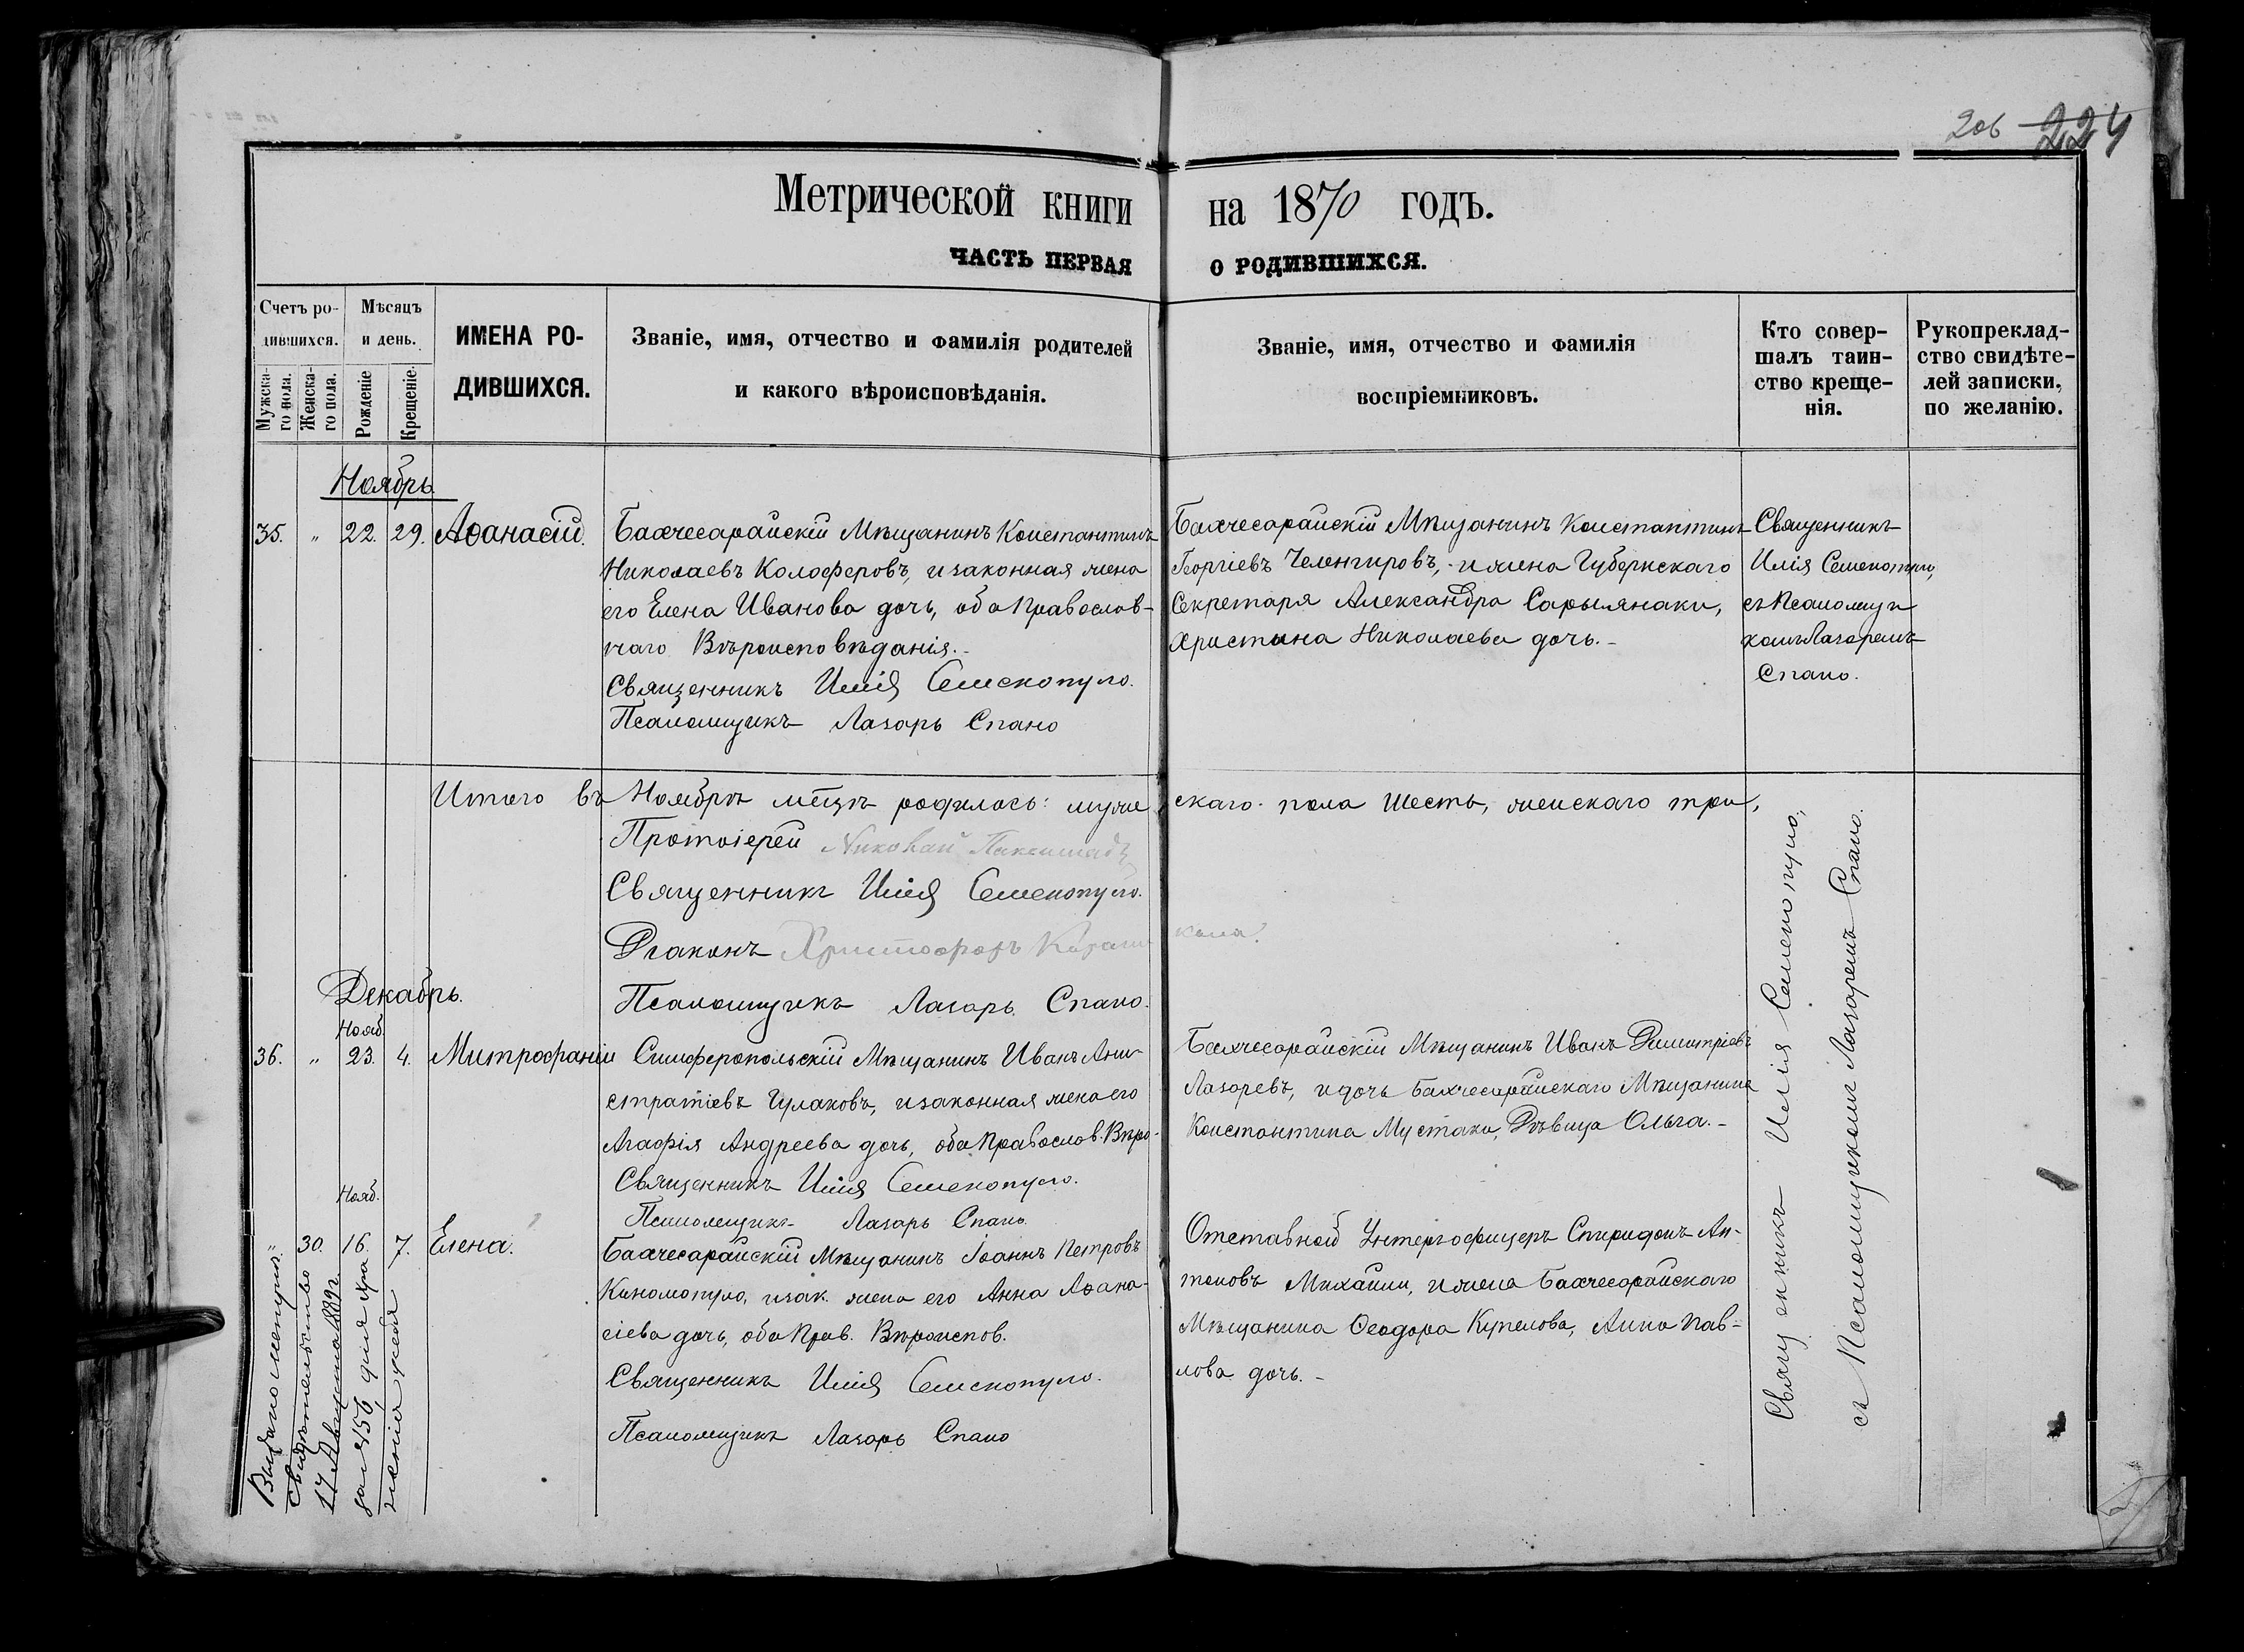 206 224
Метрической книги на 1870 годъ.
ЧАСТЬ ПЕРВАЯ О РОДИВШИХСЯ.
Счетъ ро-
дившихся.
Мужска-
го пола.
Женска-
го пола.
Мѣсяцъ
и день.
Рожденіе
Крещеніе.
ИМЕНА РО-
ДИВШИХСЯ.
Званіе, имя, отчество и фамилія родителей
и какого вѣроисповѣданія.
Званіе, имя, отчество и фамилія
воспріемниковъ.
Кто совер-
шалъ таин-
ство креще-
нія.
Рукопреклад-
ство свидѣте-
лей записки,
по желанію.
Ноябрь
35. " 22. 29. Аѳанасій.
Бахчесарайскій Мѣщанинъ Константинъ
Николаевъ Колоферовъ, и законная жена
его Елена Иванова дочь, оба Православ-
наго Вѣроисповѣданія.-
Священникъ Илія Семенопуло.
Псаломщикъ Лазарь Спано
Бахчесарайскій Мѣщанинъ Константинъ
Георгіевъ Челенгировъ, и жена Губернскаго
Секретаря Александра Сарыянаки,
Христина Николаева дочь.-
Священникъ
Илія Семенопуло,
съ Псаломщи
комъ Лазаремъ
Спано.
Итого въ Ноябрѣ мѣцѣ родилось: муже скаго пола шесть, женскаго три,
Протоіерей Николай
Священникъ Илія Семенопуло.
Діаконъ Христофоръ
Псаломщикъ Лазарь Спано.
Декабрь.
Нояб.
36. " 23. 4. Митрофаній
Симферопольскій Мѣщанинъ Иванъ Ани-
стратіевъ Гулаковъ, и законная жена его
Агафія Андреева дочь, оба Православ. Вѣро-
Священникъ Илія Семенопуло.
Псаломщикъ Лазарь Спано
Бахчесарайскій Мѣщанинъ Иванъ Димитріевъ
Лазаревъ, и дочь Бахчесарайскаго Мѣщанина
Константина Мустаки, Дѣвица Ольга.-
Нояб.
" 30. 16. 7. Елена.
Бахчесарайскій Мѣщанинъ Іоаннъ Петровъ
Киномопуло, и зак. жена его Анна Аѳана-
сіева дочь, оба Прав. Вѣроиспов.
Священникъ Илія Семенопуло.
Псаломщикъ Лазарь Спано
Отставной Унтеръ-офицеръ Спиридонъ Ан-
тоновъ Михаили, и жена Бахчесарайскаго
Мѣщанина Ѳеодора Купелова, Анна Пав-
лова дочь.-
Священникъ Илія Семенопуло,
съ Псаломщикомъ Лазаремъ Спано.
Выдано метрич.
свидѣтельство
17 Августа 1892 г.
за № 156 для